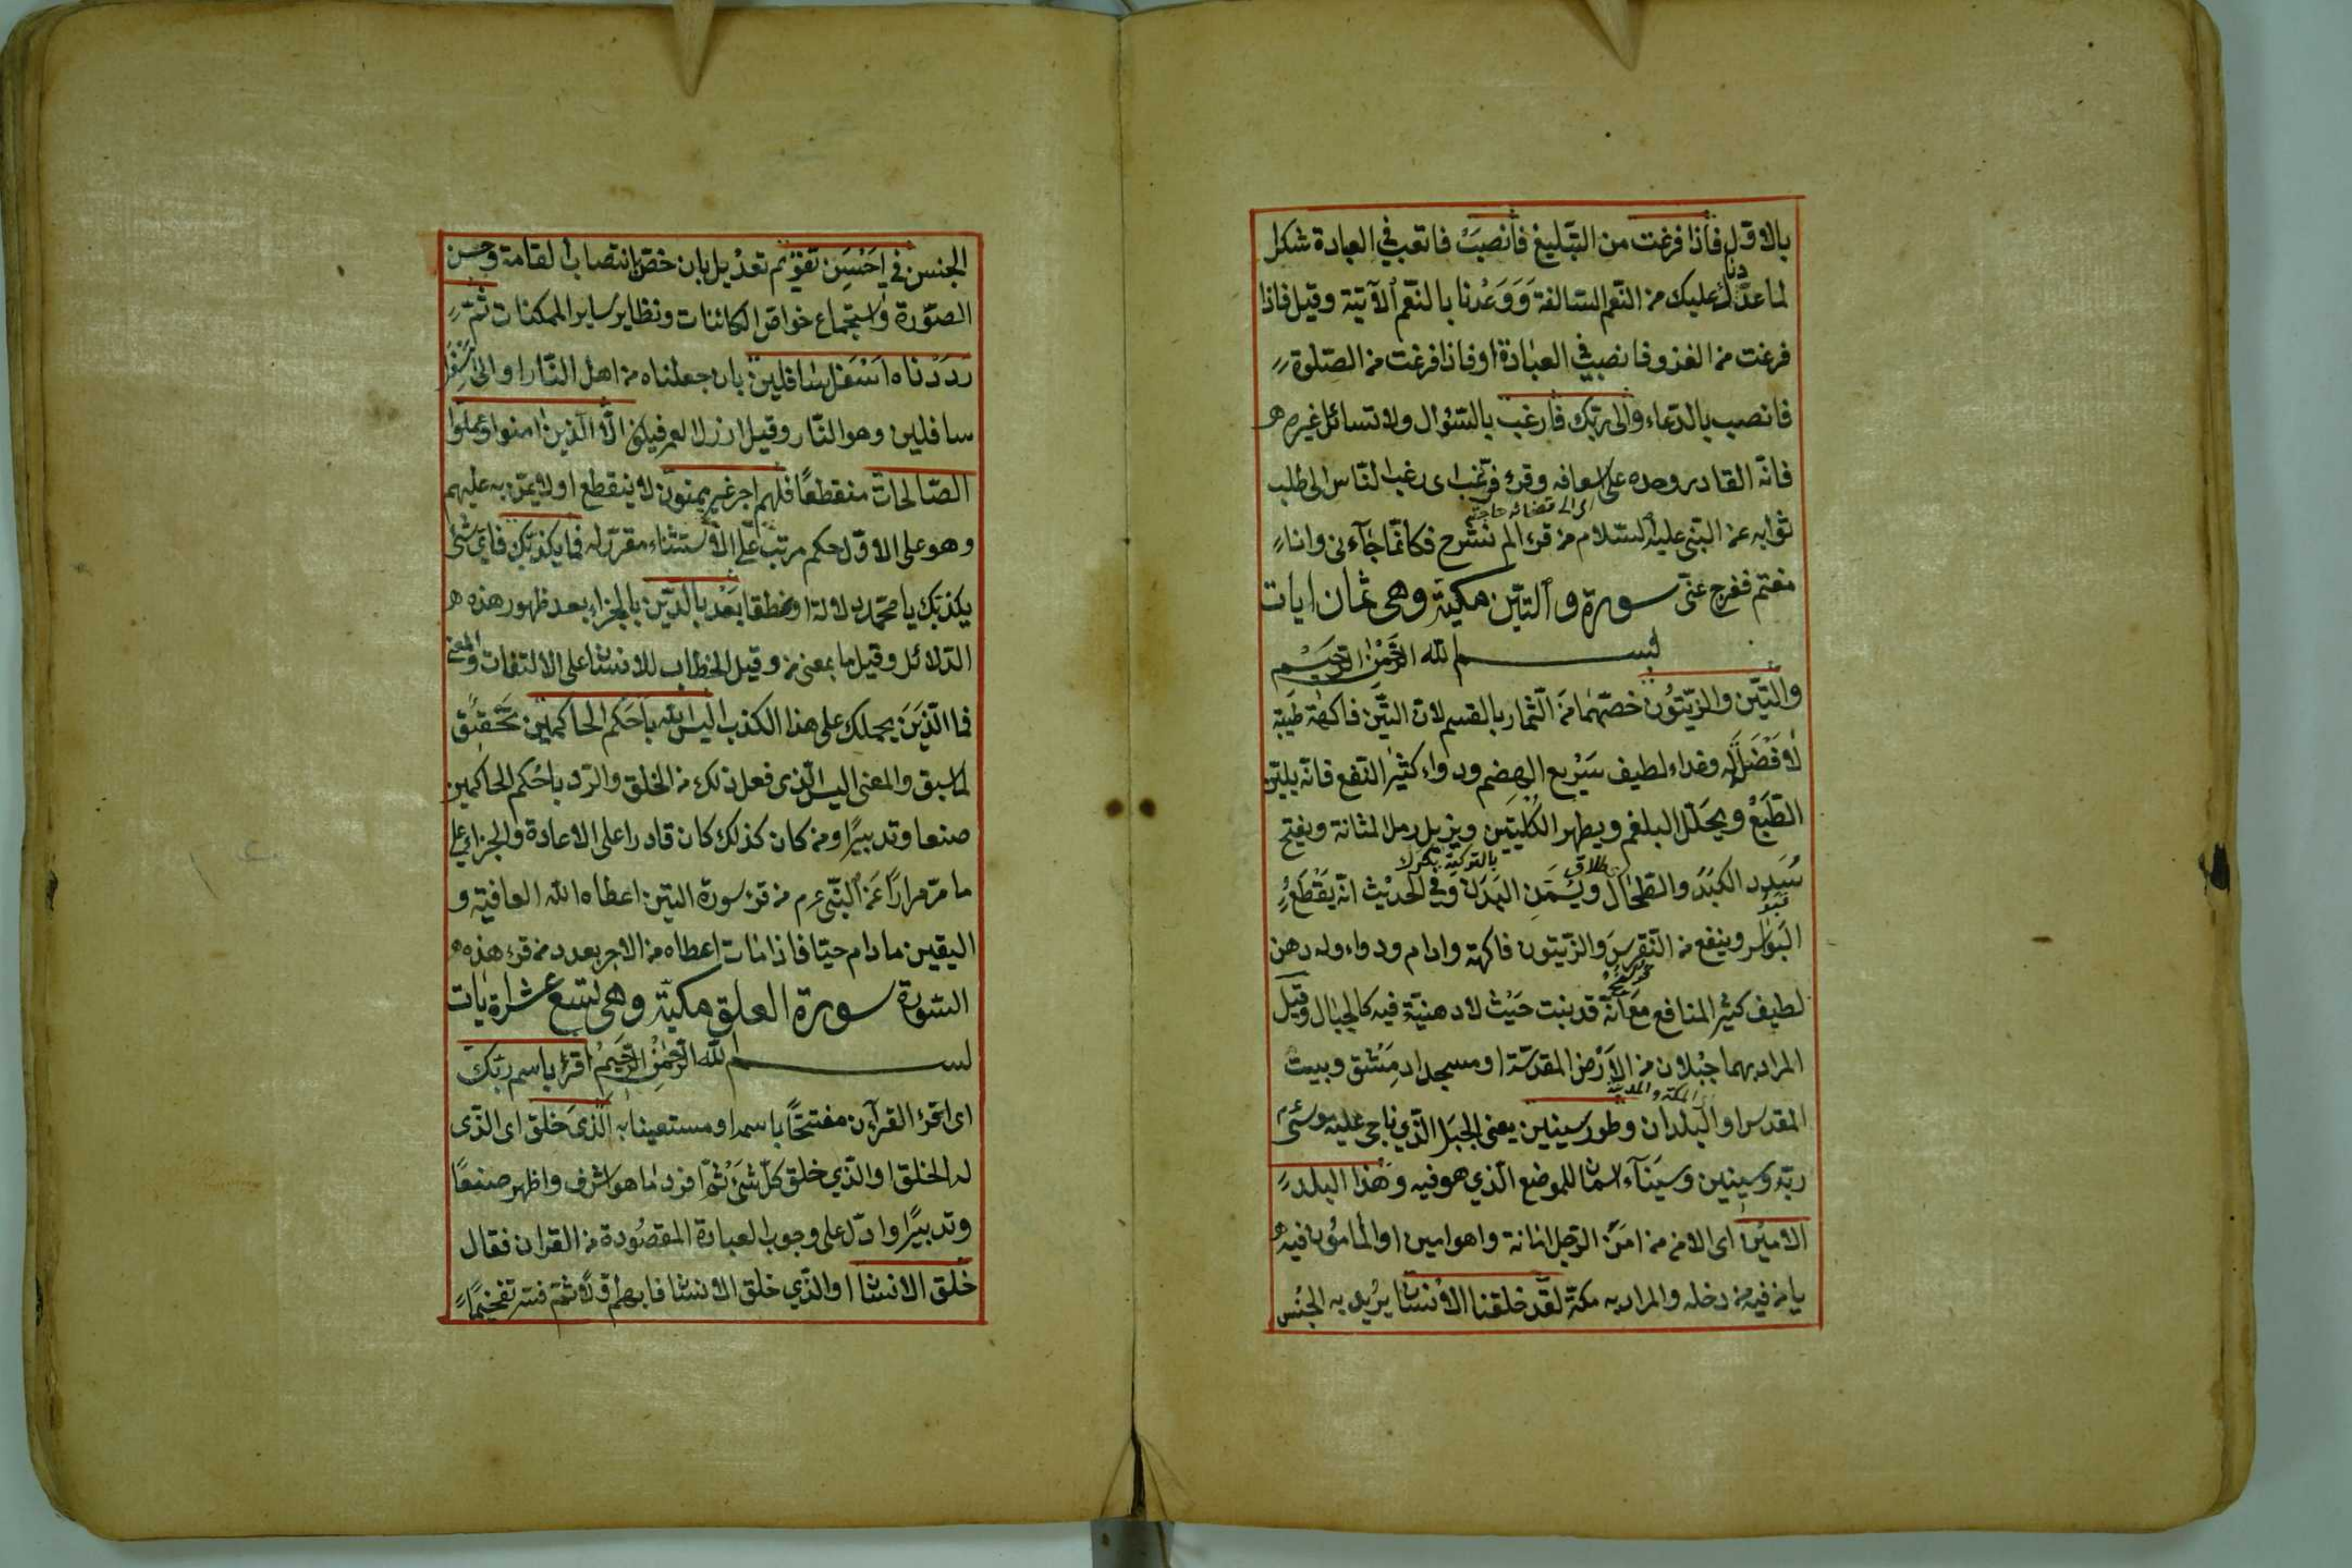 بالاول فاذا فرغت من التبليغ فانصب فاتعب في العبادة شكرا
لما عددنا عليك من النعم السالفة ووعدنا بالنعم الآتية وقيل فاذا
فرغت من الغزو فانصب في العبادة او فاذا فرغت من الصلوة
فانصب بالدعاء والى ربك فارغب بالسؤال ولا تسائل غيره
فانه القادر وحده على اسعافه وقرئ فرغب اى رغب الناس الى طلب
ثوابه عن النبى عليه السلام من قرء الم نشرح فكانما جآءنى وانا
مغتم ففرج عنى سورة والتين مكية وهى ثمان ايات
بسم الله الرحمن الرحيم
والتين والزيتون خصهما من الثمار بالقسم لان التين فاكهة طيبة
لا فضل له وغداء لطيف سريع الهضم ودواء كثير النفع فانه يلين
الطبع ويحلل البلغم ويطهر الكليتين ويزيل رمل المثانة ويفتح
سدد الكبد والطحال ويسمن البدن وفي الحديث انه يقطع
البواسر وينفع من النقرس والزيتون فاكهة وادام ودواء وله دهن
لطيف كثير المنافع مع انه قد ينبت حيث لا دهنية فيه كالجبال وقيل
المراد بهما جبلان من الارض المقدسة او مسجدا دمشق وبيت
المقدس او البلدان وطور سينين يعنى الجبل الذي ناجى عليه موسى
ربه وسينين وسيناء اسمان للموضع الذي هو فيه وهذا البلد
الامين اى الامن من امن الرجل امانة واهو امين او المامون فيه
يامن فيه من دخله والمراد به مكة لقد خلقنا الانسان يريد به الجنس
الجنس في احسن تقويم تعديل بان خص بانتصاب القامة وحسن
الصورة واستجماع خواص الكائنات ونظاير ساير الممكنات ثم
رددناه اسفل سافلين بان جعلناه من اهل النار او الى اسفل
سافلين وهو النار وقيل ارذل العمر فيكون الا الذين امنوا وعملوا
الصالحات منقطعا فلهم اجر غير ممنون لا ينقطع او لا يمن به عليهم
وهو على الاول حكم مرتب على الاستثناء مقرر له فما يكذبك فاى شئ
يكذبك يا محمد دلالة او نطقا بعد بالدين بالجزاء بعد ظهور هذه
الدلائل وقيل ما بمعنى من وقيل الخطاب للانسان على الالتفات والمعنى
فما الذين يحملك على هذا الكذب اليس الله باحكم الحاكمين تحقيق
لما سبق والمعنى اليس الذى فعل ذلك من الخلق والرد باحكم الحاكمين
صنعا وتدبيرا ومن كان كذلك كان قادرا على الاعادة والجزاء على
ما مر مرارا عن النبى عم من قرء سورة التين اعطاه الله العافية و
اليقين ما دام حيا فاذا مات اعطاه من الاجر بعدد من قرء هذه
السورة سورة العلق مكية وهى تسع عشر اية
بسم الله الرحمن الرحيم اقرء باسم ربك
اى اقرء القرآن مفتتحا باسمه او مستعينا به الذى خلق اى الذى
له الخلق او الذي خلق كل شئ ثم افرد ما هو اشرف واظهر صنعا
وتدبيرا وادل على وجوب العبادة المقصودة من القران فقال
خلق الانسان او الذي خلق الانسان فابهم اولا ثم فسر تفخيما